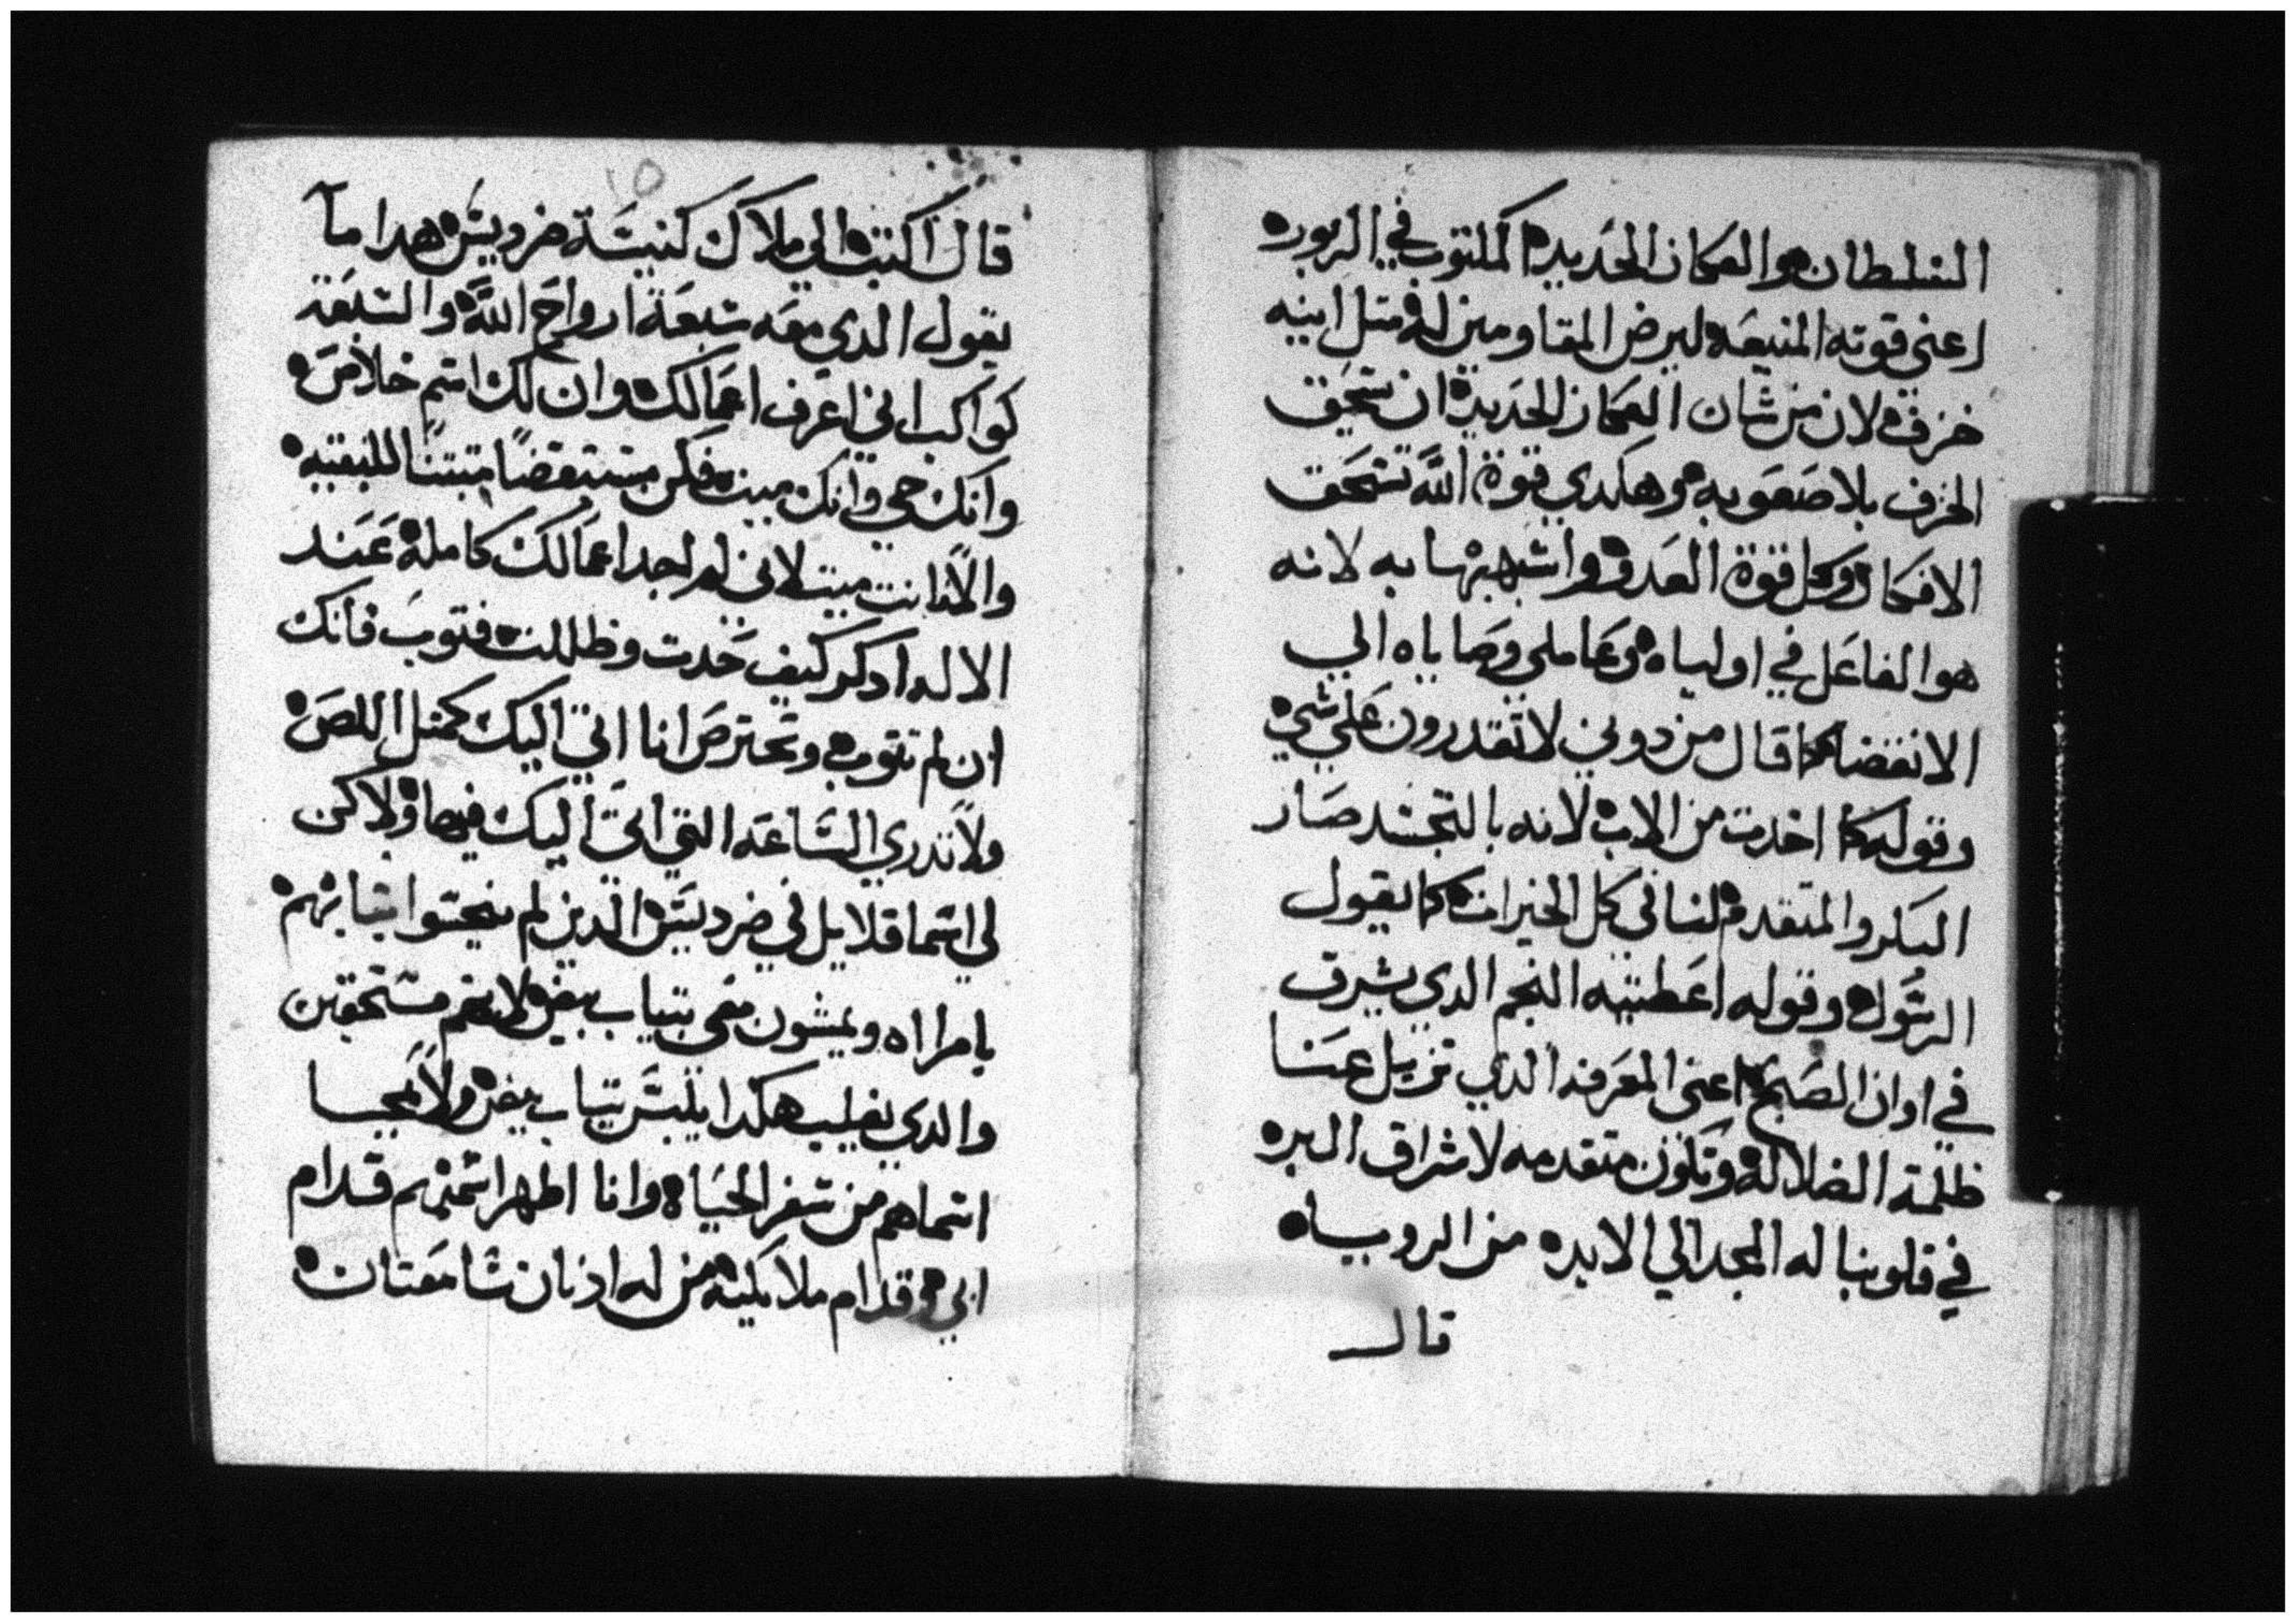 السلطان هو العكاز الحديد المكتوب في الزبوره
اعني قوته المنيعه لبرض المقاومين له متل انيه
خزف لان من شان العكاز الحديد ان تسحق
الخزف بلا صعوبه وهكدي قوة الله تسحق
الافكار وكل قوة العدو واشبهها به لانه
هو الفاعل في اولياه وعاملي وصاياه الي
الانقضا كما قال من دوني لا تقدرون علي شي
وقوله كما اخدت من الاب لانه بالتجسد صار
البكر والمتقدم لنا في كل الخيرات كما يقول
الرسول وقوله اعطيه النجم الدي يشرق
في اوان الصبح اعني المعرفه الدي تزيل عنا
ظلمة الضلاله وتكون متقدمه لاشراق البره
في قلوبنا له المجد الي الابده من الروياه
قال
قال اكتب الي ملاك كنيسة سرديس هدا ما
يقول الدي معه سبعة ارواح الله والسبعة
كواكب اني اعرف اعمالك وان لك اسم خلاص
وانك حي وانك ميت فكن مستيقضا متبتا للبقيه
والا انت ميت لاني لم اجد اعمالك كاملة عند
الاله ادكر كيف خدت وظللت فتوب فانك
ان لم تتوب وتحترص انا اتي اليك كمتل اللص
ولا تدري الساعه التي اتي اليك فيها ولاكن
لي اسما قلايل في ضرديس الدين لم ينجسوا تيابهم
بامراه ويمشون معي بتياب بيض لانهم مستحقين
والدي يغلب هكدا يلبس تياب بيض ولا يمحيا
اسماهم من سفر الحياه وانا اظهر اسمهم قدام
ابي وقدام ملايكته من له ادنان سامعتان